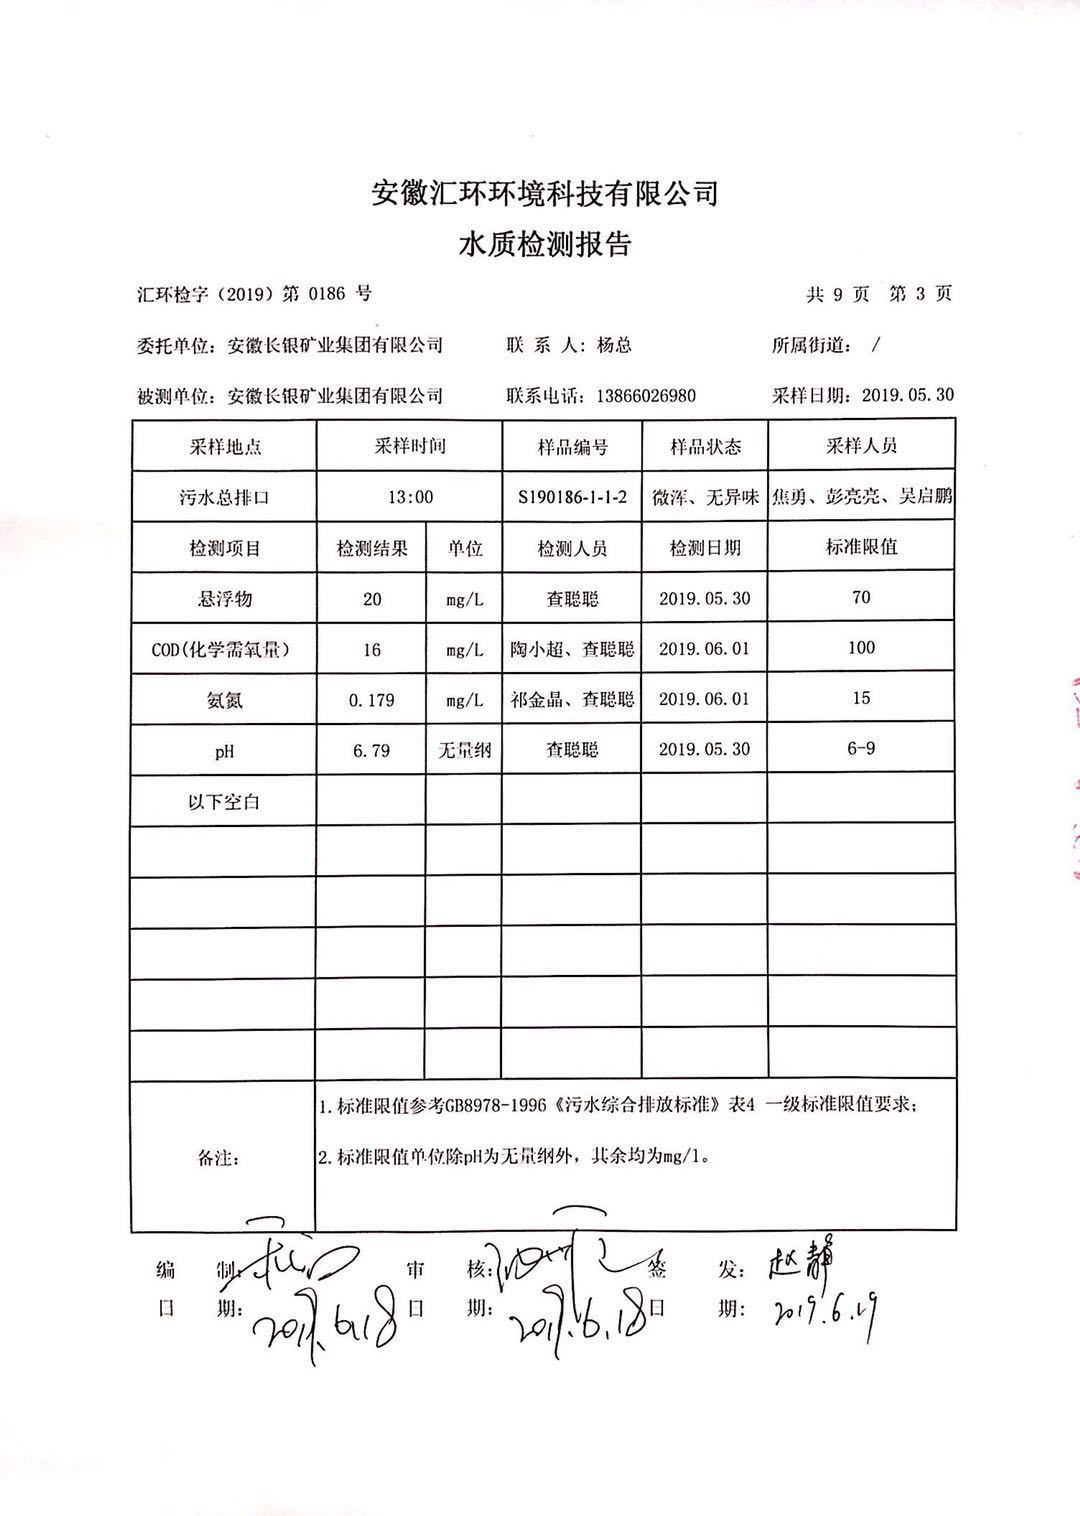 安徽汇环环境科技有限公司
水质检测报告
汇环检字（2019）第 0186 号 共 9 页 第 3 页
委托单位：安徽长银矿业集团有限公司 联 系 人：杨总 所属街道： /
被测单位：安徽长银矿业集团有限公司 联系电话：13866026980 采样日期：2019.05.30
采样地点 采样时间 样品编号 样品状态 采样人员
污水总排口 13:00 S190186-1-1-2 微浑、无异味 焦勇、彭亮亮、吴启鹏
检测项目 检测结果 单位 检测人员 检测日期 标准限值
悬浮物 20 mg/L 查聪聪 2019.05.30 70
COD(化学需氧量） 16 mg/L 陶小超、查聪聪 2019.06.01 100
氨氮 0.179 mg/L 祁金晶、查聪聪 2019.06.01 15
pH 6.79 无量纲 查聪聪 2019.05.30 6-9
以下空白
1.标准限值参考GB8978-1996《污水综合排放标准》表4 一级标准限值要求；
备注： 2.标准限值单位除pH为无量纲外，其余均为mg/l。
编 制： 审 核： 签 发：赵静
日 期：2019.6.18 日 期：2019.6.18 日 期：2019.6.19